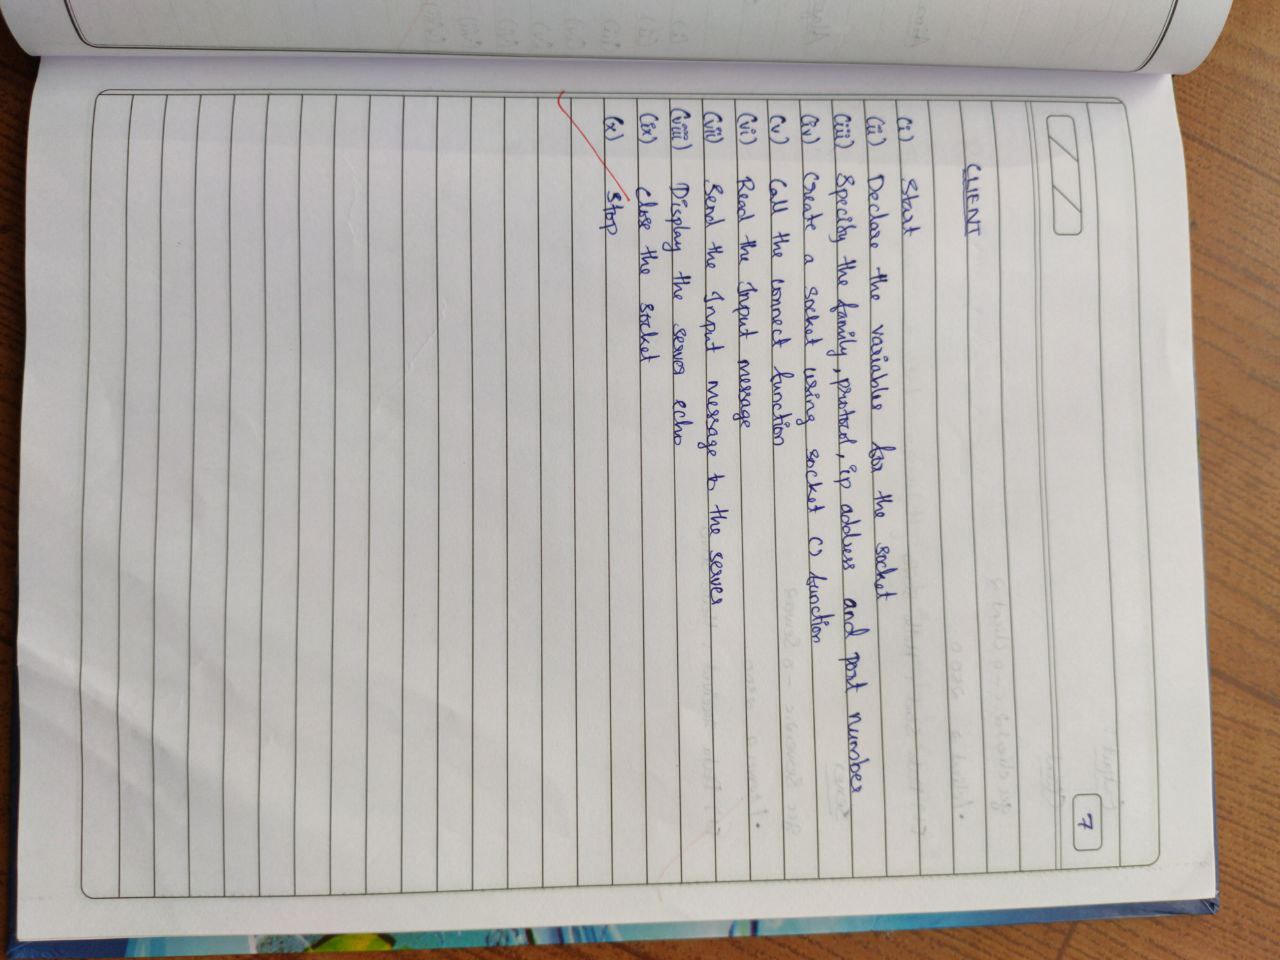 7
CLIENT
(i) Start
(ii) Declare the variables for the socket
(iii) Specify the family, protocol, ip address and port number
(iv) Create a socket using socket () function
(v) Call the connect function
(vi) Read the Input message
(vii) Send the Input message to the server
(viii) Display the server echo
(ix) Close the socket
(x) Stop